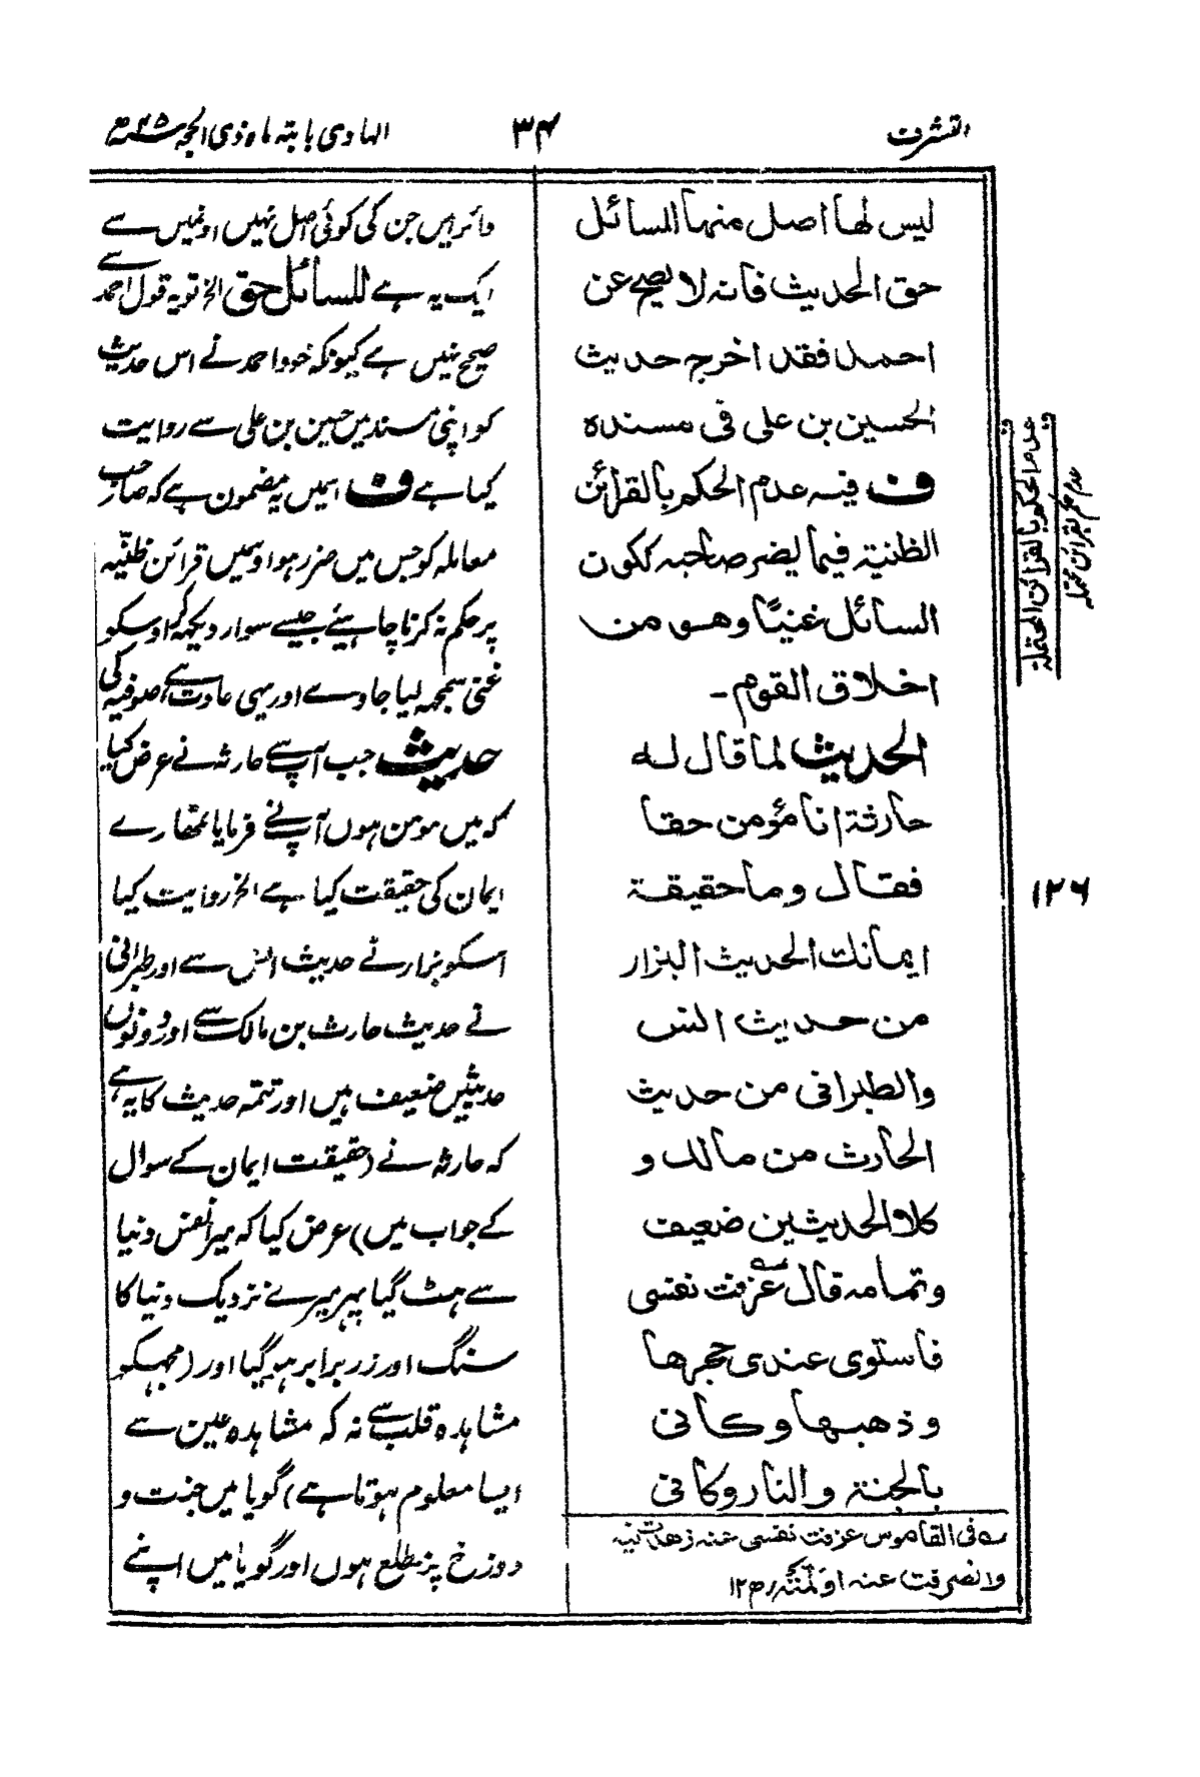 التشرف
۳۴
الہادی بابتہ ماہ ذی الحجہ ۴۵ھ
ليس لها اصل منها للسائل
حق الحديث فانه لا يصح عن
احمد فقد اخرج حديث
الحسين بن علی فی مسنده
ف فيه عدم الحكم بالقرائن
الظنية فيما يضر صاحبه ككون
السائل غنيًا وهو من
اخلاق القوم۔
الحديث لما قال له
حارثة انا مؤمن حقا
فقال وما حقيقة
ايمانك الحديث البزار
من حديث انس
والطبرانی من حديث
الحارث من مالك و
كلا الحديثين ضعيف
وتمامه قال عزفت نفسی
فاستوی عندی حجرها
وذهبها وكانی
بالجنة والنار وكانی
ـه فی القاموس عزفت نفسی عنه زهدت فيه
وانصرفت عنه او ملته ۱۲
دائر ہیں جن کی کوئی اصل نہیں اونمیں سے
ایک یہ ہے للسائل حق الخ تو یہ قول احمد سے
صحیح نہیں ہے کیونکہ خود احمد نے اس حدیث
کو اپنی مسند میں حسین بن علی سے روایت
کیا ہے ف اسمیں یہ مضمون ہے کہ صاحب
معاملہ کو جس میں ضرر ہو اوسمیں قرائن ظنّیہ
پر حکم نہ کرنا چاہیئے جیسے سوار دیکھکر اوسکو
غنی سمجھ لیا جاوے اور یہی عادت ہے صوفیہ کی
حدیث جب آپ سے حارثہ نے عرض کیا
کہ میں مومن ہوں آپ نے فرمایا تمھارے
ایمان کی حقیقت کیا ہے الخ روایت کیا
اسکو بزار نے حدیث انس سے اور طبرانی
نے حدیث حارث بن مالک سے اور دونوں
حدیثیں ضعیف ہیں اور تتمہ حدیث کا یہ ہے
کہ حارثہ نے (حقیقت ایمان کے سوال
کے جواب میں) عرض کیا کہ میرا نفس دنیا
سے ہٹ گیا پھر میرے نزدیک دنیا کا
سنگ اور زر برابر ہوگیا اور (مجھکو
مشاہدہ قلب سے نہ کہ مشاہدہ عین سے
ایسا معلوم ہوتا ہے) گویا میں جنت و
دوزخ پر مطلع ہوں اور گویا میں اپنے
عدم الحكم بالقرائن المحتملة
عدم حکم بقرائن محتملہ
۱۲۶